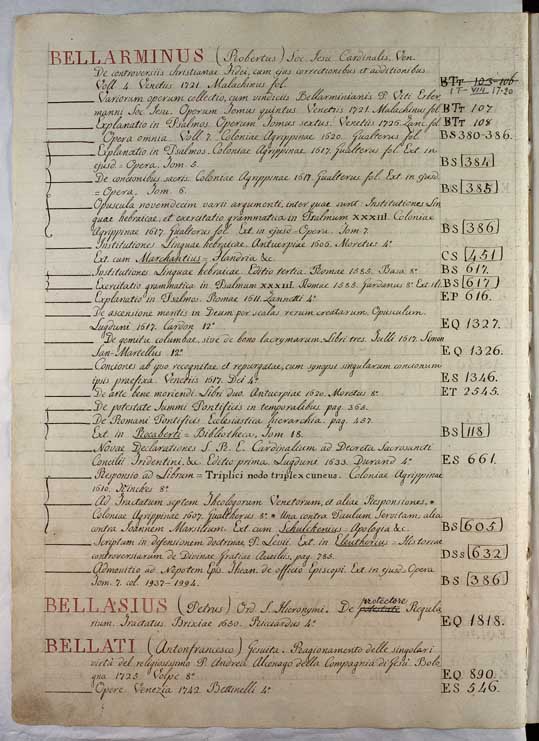 BELLARMINUS (Robertus) Soc. Jesu. Cardinalis. Ven.
De controversiis Christianae Fidei, cum ejus correctionibus et additionibus.
Voll. 4. Venetiis 1721. Malachinus fol. BTT 103-106
17-20
Variorum operum collectio, cum vindiciis Bellarminianis P. Viti Erber
manni Soc. Jesu. Operum Tomus quintus. Venetiis 1721. Malachinus fol. BTT 107
Explanatio in Psalmos. Operum Tomus sextus. Venetiis 1726. fol. BTT 108
Opera omnia. Voll. 7. Coloniae Agrippinae 1620. Gualterus fol. BS 380-386.
Explanatio in Psalmos. Coloniae Agrippinae 1617. Gualterus fol. Ext. in
ejusd = Opera. Tom. 5. BS [384]
De concionibus sacris. Coloniae Agrippinae 1617. Gualterus fol. Ext. in ejusd
= Opera. Tom. 6. BS [385]
Opuscula novemdecim varii argumenti, inter quae sunt: Institutiones Lin
guae hebraicae, et exercitatio grammatica in Psalmum XXXIII. Coloniae
Agrippinae 1617. Gualterus fol. Ext. in ejusd = Opera. Tom. 7. BS [386]
Institutiones Linguae hebraicae. Antverpiae 1606. Moretus 4º
Ext. cum Marchantius = Flandria &c. CS [451]
Institutiones Linguae hebraicae. Editio tertia. Romae 1585. Basa 8º BS 617.
Exercitatio grammatica in Psalmum XXXIII. Romae 1585. 8º Ext. ib. BS [617]
Explanatio in Psalmos. Romae 1611. Zannetti 4º EP 616.
De ascensione mentis in Deum per scalas rerum creatarum Opusculum.
Lugduni 1617. Cardon 12º EQ 1327.
De gemitu columbae, sive de bono lacrymarum. Libri tres. 1617. Simon
San-Martellus 12º EQ 1326.
Conciones ab ipso recognitae et repurgatae, cum synopsi singularum concionum
ipsis praefixa. Venetiis 1617. 4º ES 1346.
De arte bene moriendi. Libri duo. Antverpiae 1620. Moretus 8º ET 2545.
De potestate Summi Pontificis in temporalibus pag. 365.
De Romani Pontificis Ecclesiastica hierarchia. pag. 457.
Ext. in Rocaberti = Bibliotheca. Tom. 18. BS [118]
Novae Declarationes S. R. E. Cardinalium ad Decreta Sacrosancti
Concilii Tridentini. &c. Editio prima. Lugduni 1633. Durand 4º ES 661.
Responsio ad Librum = Triplici nodo triplex cuneus. Coloniae Agrippinae
1610. Kinckes 8º
Ad Tractatum septem Theologorum Venetorum, et aliae Responsiones.
Coloniae Agrippinae 1607. Gualtherus 8º Una contra Paulum Servitam, alia
contra Joannem Marsilium. Ext. cum Schulckenius = Apologia &c. BS [605]
Scriptum in defensionem doctrinae P. Lessii. Ext. in Eleutherius = Historiae
controversiarum de Divinae Gratiae Auxiliis, pag. 785. DSS [632]
Admonitio ad Nepotem Epis. Thean. de officio Episcopi. Ext. in ejusd. Opera
Tom. 7. col. 1937-1994. BS [386]
BELLASIUS (Petrus) Ord. S. Hieronymi. De potestate protectore Regula
rium. Tractatus. Brixiae 1630. Ricciardus 4º EQ 1818.
BELLATI (Antonfrancesco) Gesuita. Ragionamento delle singolari
virtù del religiosissimo P. Andrea della Compagnia di Gesù. Bolo
gna 1725. Volpe 8º EQ 890.
Opere. Venezia 1742. Bettinelli 4º ES 546.